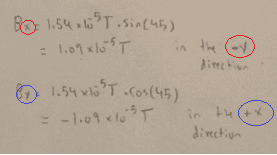 Bx = 1.54 x10^-5 T · sin(45)
= 1.09 x10^-5 T in the -y direction
By = 1.54 x10^-5 T · cos(45)
= -1.09 x10^-5 T in the +x direction